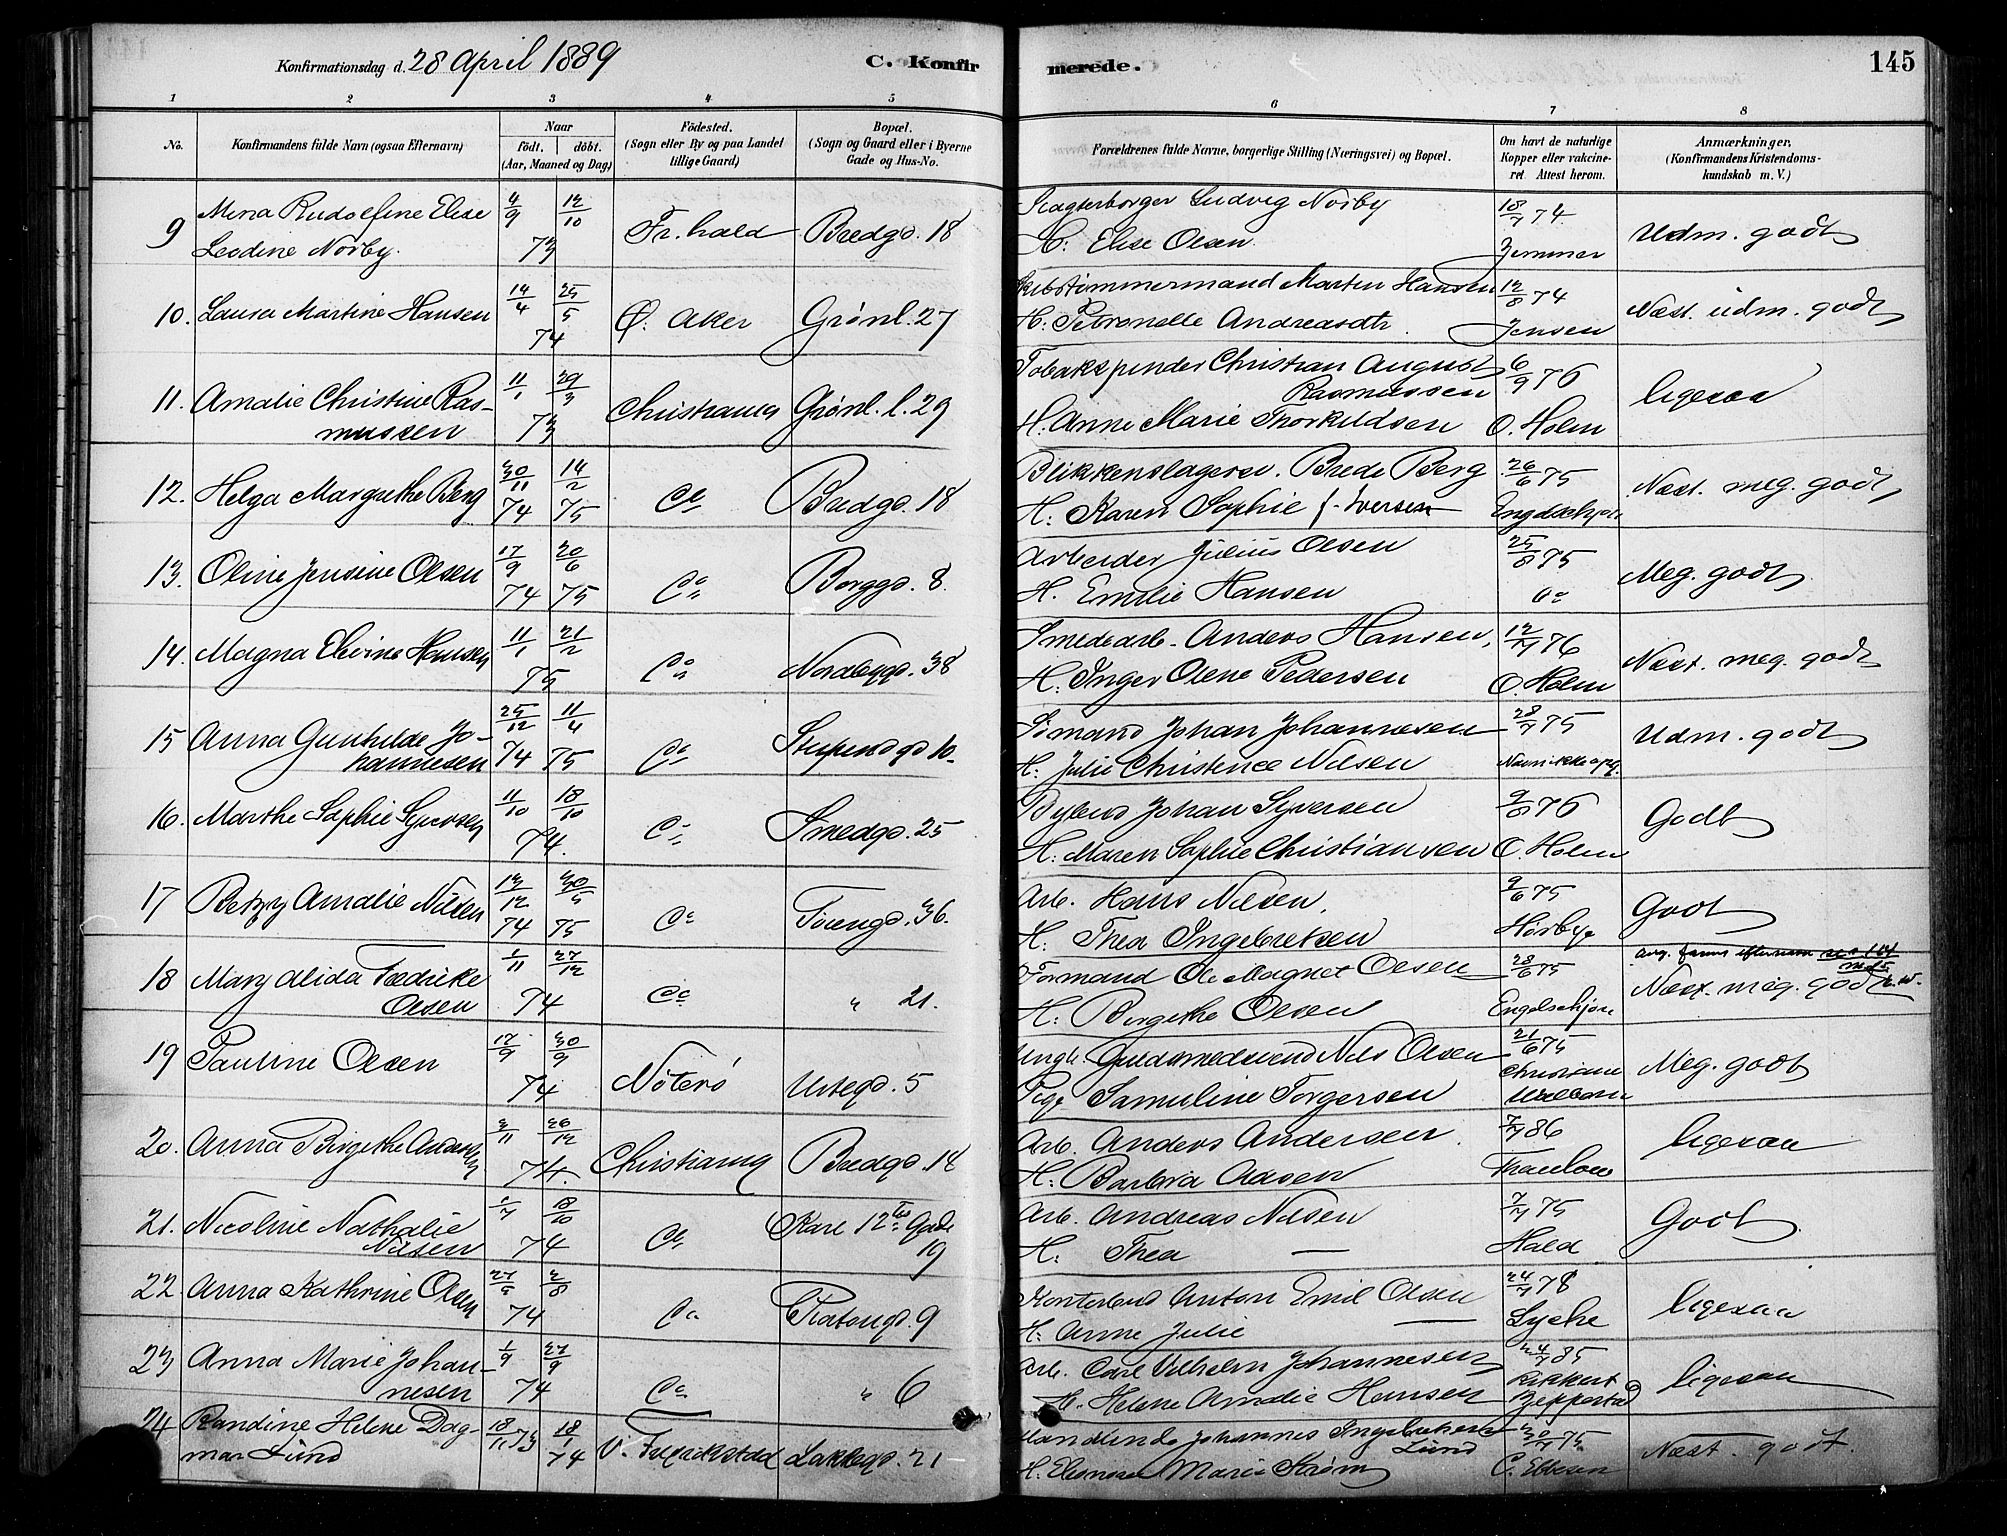 Konfirmationsdag d. 28 April 1889
C. Konfirmerede.
145
1 2 3 4 5 6 7 8
No.
Konfirmandens fulde Navn (ogsaa Efternavn)
Naar
født. døbt.
(Aar, Maaned og Dag)
Fødested.
(Sogn eller By og paa Landet
tillige Gaard)
Bopæl.
(Sogn og Gaard eller i Byerne
Gade og Hus-No.
Forældrenes fulde Navne, borgerlige Stilling (Næringsvei) og Bopæl.
Om havt de naturlige
Kopper eller vakcine-
ret. Attest herom.
Anmærkninger.
(Konfirmandens Kristendoms-
kundskab m. V.)
9 Mina Rudolfine Elise
Leodine Norby.
4/9 12/10 73
Fr.hald
Bredgd. 18
Slagterborger Ludvig Norby
H: Elise Olsen
18/7 74
Zemmer
Udm. godt
10. Laura Martine Hansen
14/4 25/5 74
Ø. Aker
Grønl. 27
Skibstømmermand Martin Hansen
H: Petronelle Andreasdtr.
12/8 74
Jensen
Næst. udm. godt
11. Amalie Christine Ras-
mussen
11/1 29/3 73
Christiania
Grønl. l. 29
Tobakspinder Christian August
Rasmussen
H. Anne Marie Thorkildsen
6/9 76
O. Holm
ligesaa
12. Helga Margrethe Berg
30/11 74 14/2 75
Bredgd. 18
Blikkenslagersv. Brede Berg
H: Karen Sophie f. Iversen
26/6 75
Næst. meg. godt
13. Oline Jensine Olsen
17/9 74 20/6 75
Borggd. 8.
Arbeider Julius Olsen
H. Emilie Hansen
25/8 75
Meg. godt
14. Magna Elevine Hansen
11/1 21/2 75
Nordbygd. 38
Smedearb. Anders Hansen,
H. Inger Olene Pedersen
12/7 76
O. Holm
Næst. meg. godt
15 Anna Gunhilde Jo-
hannesen
25/12 74 11/4 75
Stupendgd 10.
Sømand Johan Johannesen
H: Julie Christence Nilsen
28/7 75
Udm. godt
16. Marthe Sophie Syversen
11/10 18/10 74.
Smedgd. 25
Bylbud Johan Syversen
H: Maren Sophie Christiansen
O. Holm
Godt
17 Betzy Amalie Nilsen
13/12 74 30/5 75
Tøiengd. 36.
Arb. Hans Nilsen,
H: Thea Ingebretsen
9/6 75
Hørbye
Godt
18 Mary Alida Fredrikke
Olsen
1/11 27/12 74
" 21.
Formand Ole Magnet Olsen
H. Birgethe Olsen
28/6 75
Engelschjøn
Næst. meg. godt
19 Pauline Olsen
17/9 30/9 74
Nøterø
Urtegd. 5
Ungk. Guldsmedsvend Nils Olsen
Pige Samuline Torgersen
21/6 75
Meg. godt
20. Anna Birgethe Andersen
2/11 26/12 74.
Christiania
Bredgd. 14
Arb. Anders Andersen.
H: Barbra Aasen
7/7 86
Thaulow
ligesaa
21. Nicoline Nathalie
Nilsen
1/7 18/10 74
Karl 12te Gade
19
Arb. Andreas Nilsen
H: Thea —
7/7 75
Hald
Godt.
22 Anna Kathrine Olsen
27/5 2/8 74
Platougd. 9
Kontorbud Anton Emil Olsen
H: Anne Julie —
24/7 78
Lyche
ligesaa
23 Anna Marie Johan-
nesen
1/9 27/9 74
" 6
Arb. Carl Vilhelm Johannesen
H. Helene Amalie Hansen
24/7 85
ligesaa
24 Randine Helene Dag-
mar Lund
18/11 73 18/1 74
V. Fredrikstad
Lakkegd. 21
Handlende Johannes Ingebrethsen
Lund
H. Eleonora Marie Strøm
30/7 75
C. Ebbesen
Næst. godt.